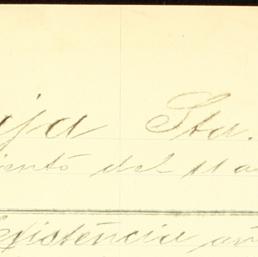 ja Sta.
iento del
Existencia an